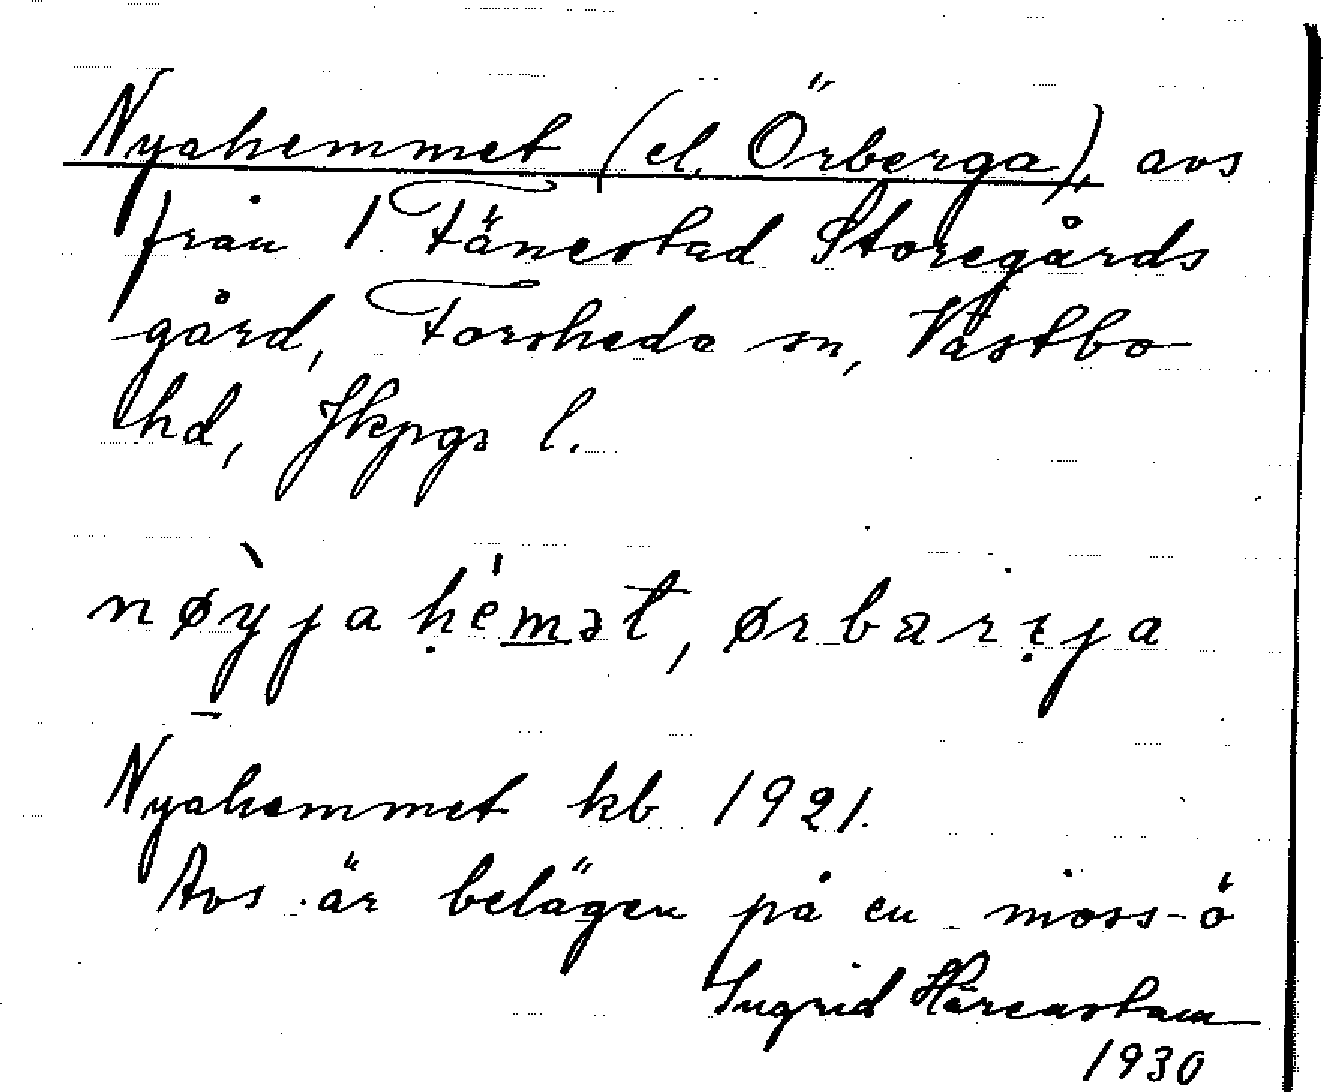 Nyahemmet (el. Örberga), avs
från 1 Tänestad Storegårds
gård, Forsheda sn, Västbo
hd, Jkpgs l.
nøyjahemət, ørbarja
Nyahemmet kb 1921.
Avs är belägen på en moss-ö
Ingrid Härenstam
1930